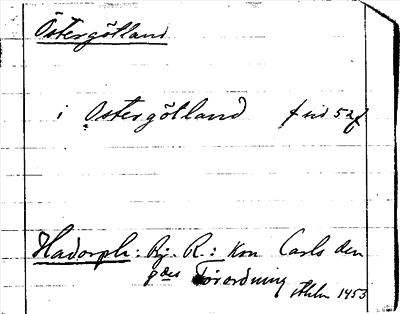 Östergötland
i Östergötland f sid 52f
Hadorph: Bj. R.: Kon Carls den
Förordning
Sthlm 1453